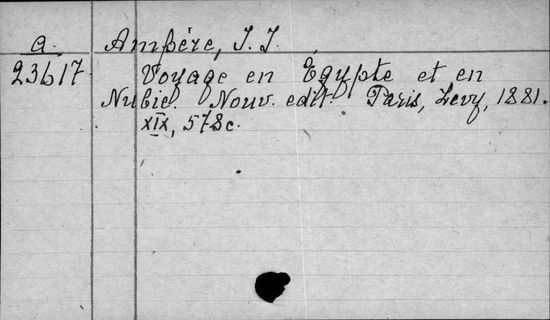 a. Ampère, J. J.
23617 Voyage en Egypte et en
Nubie. Nouv. edit. Paris, Levy, 1881.
XIX, 578c.